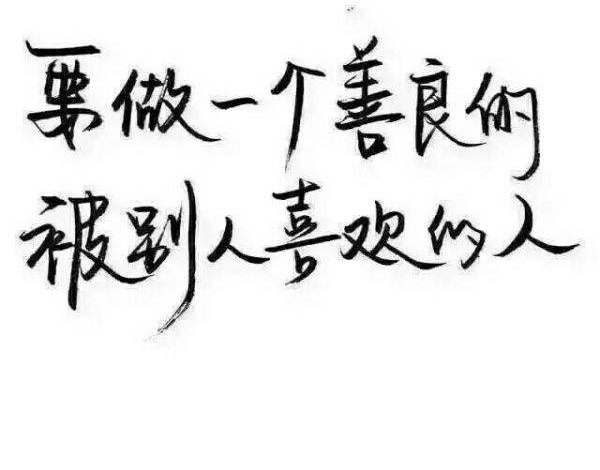 要做一个善良的
被别人喜欢的人